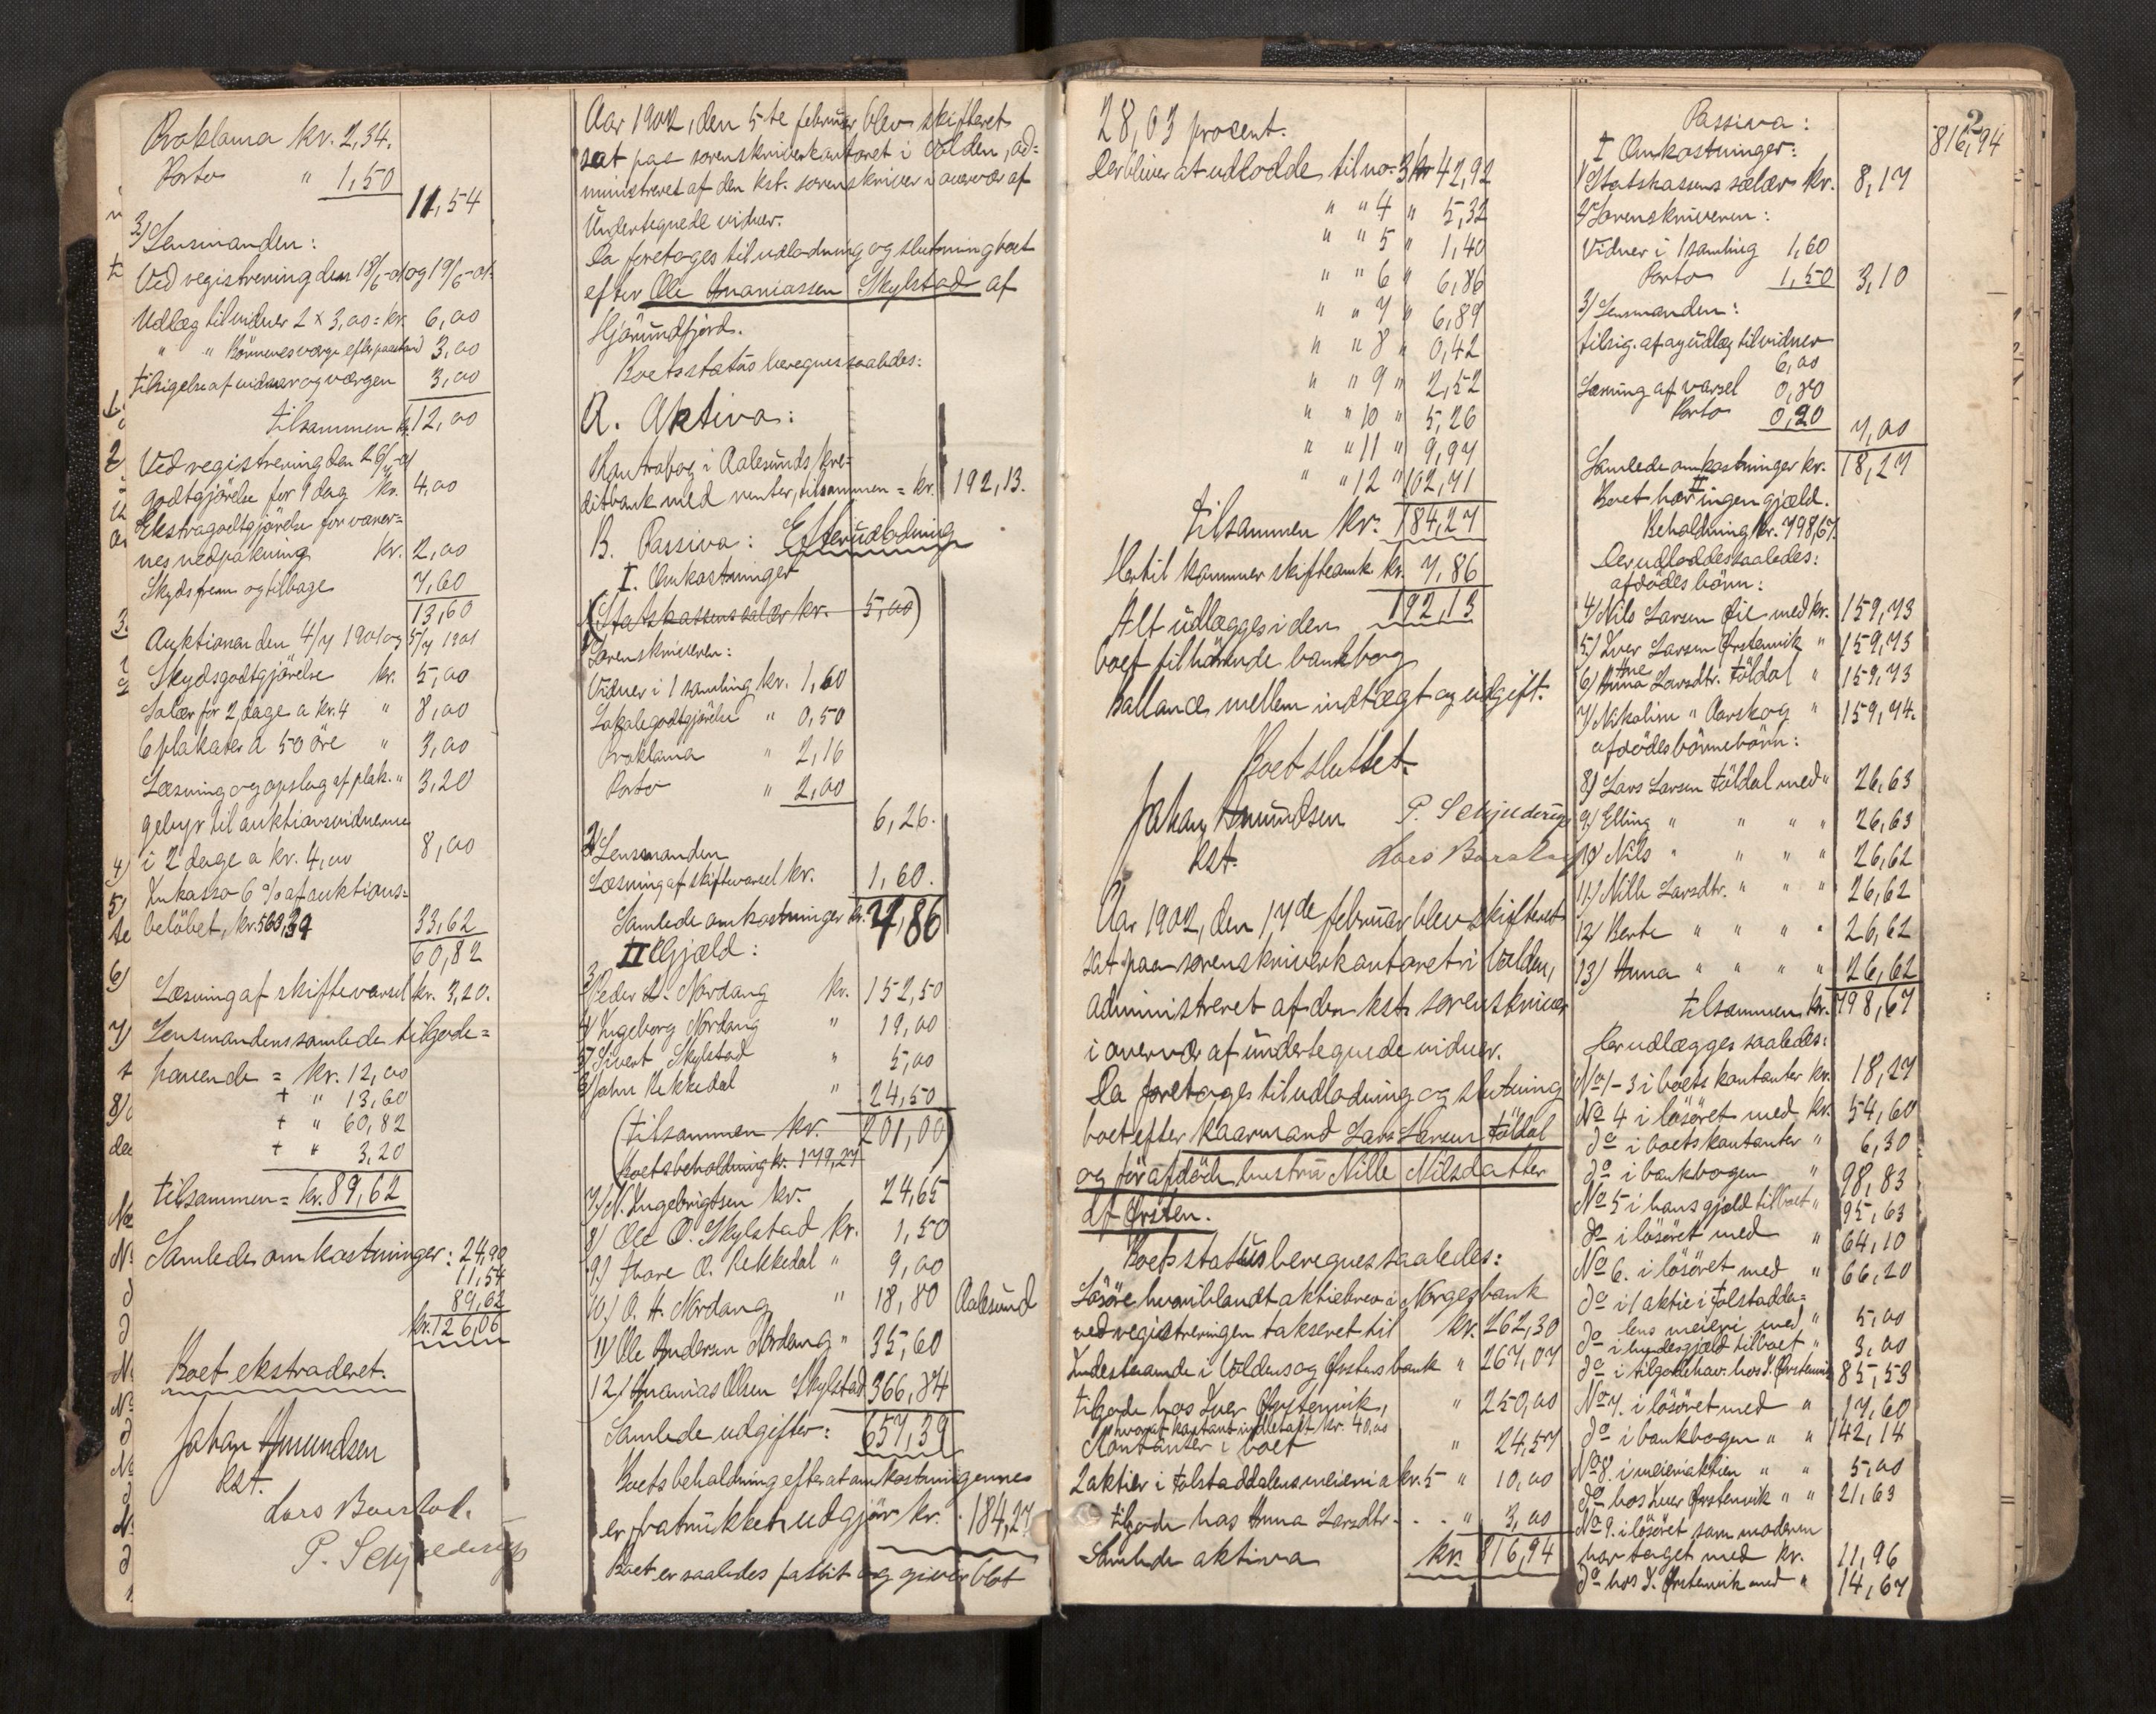 Proklama kr. 2,34.
Porto " 1,50
11,54
3) Lensmanden:
Ved registrering den 18/6-01 og 19/6-01.
Udlæg til vidner 2 x 3,00 = kr. 6,00
" " Börnenes værge efter paastand 3,00
Tilsigelse af vidner og værgen 3,00
Tilsammen kr. 12,00
Ved registrering den 26/6-01
godtgjörelse for 1 dag kr. 4,00
Ekstragodtgjörelse for varer=
nes nedpakning kr. 2,00
Skyds frem og tilbage 7,60
13,60
Auktionen den 4/7 1901 og 5/7 1901
Skydsgodtgjörelse kr. 5,00
Salær for 2 dage a kr. 4 " 8,00
6 plakater a 50 öre " 3,00
Læsning og opslag af plak. " 3,20
gebyr til auktionsvidnerne
i 2 dage a kr. 4,00 8,00
Inkasso 6 % af auktions=
belöbet, kr. 560,39 33,62
60,82
Læsning af skiftevarsel kr. 3,20.
Lensmandens samlede tilgode=
havende = kr. 12,00
+ " 13,60
+ " 60,82
+ " 3,20
tilsammen = kr. 89,62
Samlede omkostninger: 24,90
11,54
89,62
kr. 126,06
Boet ekstraderet.
Johan Amundsen
kst.
Lars Baarstad.
P. Schjelderup
Aar 1902, den 5-te februar blev skifteret
sat paa sorenskriverkontoret i Volden, ad=
ministreret af den kst. sorenskriver i overvær af
Undertegnede vidner.
Da foretages til udlodning og slutning boet
efter Ole Ananiassen Skylstad af
Hjörundfjord.
Boets status beregnes saaledes:
A. Aktiva:
Kontrabog i Aalesunds kre=
ditbank med renter, tilsammen = kr. 192,13.
B. Passiva: Efterudlodning
I. Omkostninger
(Statskassens salær kr. 5,00)
1) Sorenskriveren:
Vidner i 1 samling kr. 1,60
Lokalegodtgjörelse " 0,50
Proklama " 2,16
Porto " 2,00
6,26.
2) Lensmanden
Læsning af skiftevarsel kr. 1,60.
Samlede omkostninger kr. 7,86
II Gjæld:
3) Peder A. Nordang kr. 152,50
4) Ingeborg Nordang " 19,00
5) Sivert Skylstad " 5,00
6) John Rekkedal " 24,50
(tilsammen kr. 201,00)
Boets beholdning kr. 179,27
7) N. Ingebrigtsen kr. 24,65
8) Ole O. Skylstad kr. 1,50
9) Thore O. Rekkedal " 9,00
10) O. A. Nordang " 18,80 Aalesund
11) Ole Andersen Nordang " 35,60
12) Ananias Olsen Skylstad 366,84
Samlede udgifter: 657,39
Boets beholdning efter at omkostningerne
er fratrukket udgjör kr. 184,27
Boet er saaledes fallit og giver blot
28,03 procent.
Der bliver at udlodde til no. 3 kr 42,92
" " 4 " 5,32
" " 5 " 1,40
" " 6 " 6,86
" " 7 " 6,89
" " 8 " 0,42
" " 9 " 2,52
" " 10 " 5,26
" " 11 " 9,97
" " 12 " 102,71
Tilsammen kr. 184,27
Hertil kommer skifteomk kr. 7,86
192,13
Alt udlægges i den
boet tilhörende bankbog
Ballance mellem indtægt og udgift.
Boet sluttet.
Johan Amundsen P. Schjelderup
kst. Lars Baarstad
Aar 1902, den 17de februar blev skifteret
sat paa sorenskriverkontoret i Volden,
administreret af den kst. sorenskriver
i overvær af undertegnede vidner.
Da foretages til udlodning og slutning
boet efter kaarmand Lars Larsen Földal
og för afdöde hustru Nille Nilsdatter
af Örsten.
Boets status beregnes saaledes:
Lösöre hvoriblandt aktiebrev i Norges bank
ved registreringen takseret til kr. 262,30
Indestaaende i Voldens og Örstens bank " 267,07
Tilgode hos Iver Örstenvik, " 250,00
hvoraf kontant indbetalt kr. 40,00
Kontanter i boet " 24,57
2 aktier i Folstaddalens meieri a kr. 5 " 10,00
Tilgode hos Anna Larsdtr - - - " 3,00
Samlede aktiva kr. 816,94
2
816,94
Passiva:
I Omkostninger:
1) Statskassens salær kr. 8,17
2) Sorenskriveren:
Vidner i 1 samling 1,60
Porto 1,50 3,10
3) Lensmanden:
Tilsig. af og udlæg til vidner
6,00
Læsning af varsel 0,80
Porto 0,20 7,00
Samlede omkostninger kr. 18,27
II
Boet har ingen gjæld.
Beholdning kr. 798,67.
Der udloddes saaledes:
afdödes börn:
4) Nils Larsen Öie med kr. 159,73
5) Iver Larsen Örstenvik " 159,73
6) Anna Larsdtr. Földal " 159,73
7) Nikoline " Aarskog " 159,74.
afdödes börnebörn:
8) Lars Larsen Földal med " 26,63
9) Elling " " " " 26,63
10) Nils " " " " 26,62
11) Nille Larsdtr. " " " 26,62
12) Berte " " " " 26,62
13) Anna " " " " 26,62
Tilsammen kr. 798,67
Her udlægges saaledes:
No 1-3 i boets kontanter kr. 18,27
No 4 i lösöret med kr. 54,60
do i boets kontanter " 6,30
do i bankbogen " 98,83
No 5 i hans gjæld til boet " 95,63
do i lösöret med " 64,10
No 6. i lösöret med " 66,20
do i 1 aktie i Folstadda=
lens meieri med " 5,00
do i hendes gjæld til boet " 3,00
do i tilgodehav. hos I. Örstenvik 85,53
No 7. i lösöret med " 17,60
do i bankbogen " " 142,14
No 8. i meieriaktien " " 5,00
do hos Iver Örstenvik " " 21,63
No 9. i lösöret som moderen
har taget med kr. 11,96
do hos I. Örstenvik med " 14,67